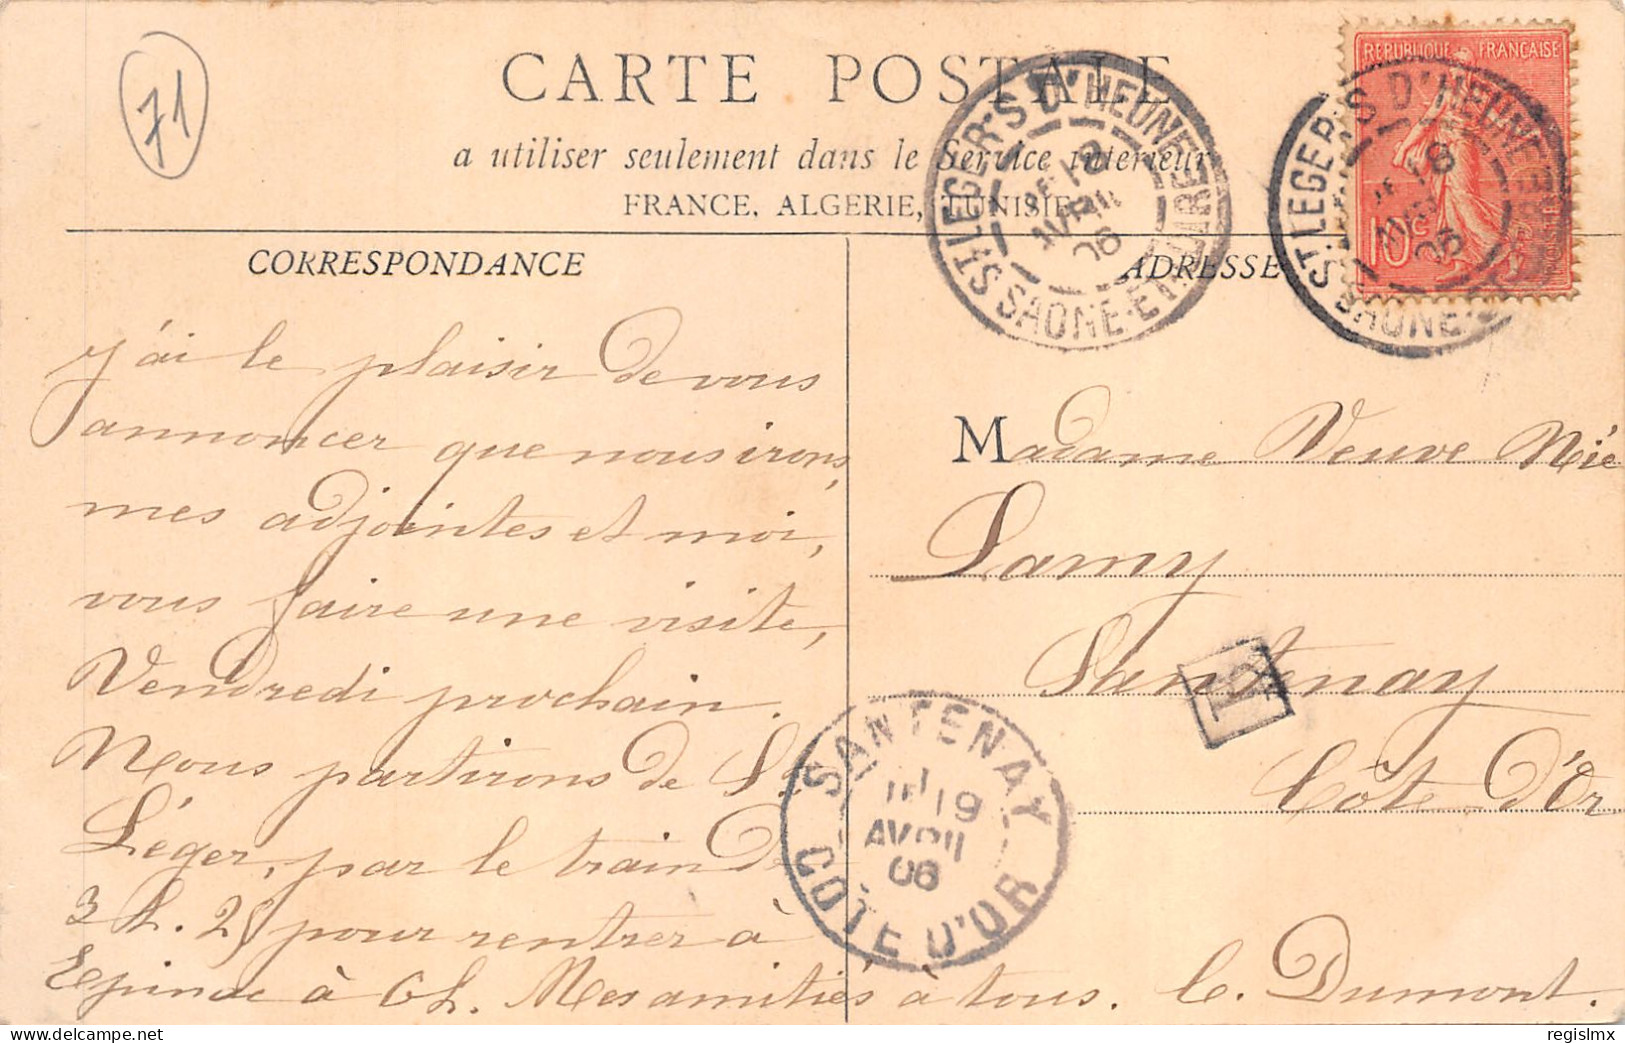 71
CARTE POSTALE
a utiliser seulement dans le Service intérieur
FRANCE, ALGERIE, TUNISIE
CORRESPONDANCE
j'ai le plaisir de vous
annoncer que nous irons,
mes adjointes et moi,
vous faire une visite,
Vendredi prochain.
Nous partirons de St
Léger, par le train de
3 h. 25 pour rentrer à
Epinac à 6 h. Mes amitiés à tous. C. Dumont.
ST LEGER-S-D'HEUNE
18
AVRIL
06
SAONE-ET-LOIRE
REPUBLIQUE FRANÇAISE
10c
ST LEGER-S-D'HEUNE
18
06
SAONE
ADRESSE
Madame Veuve
Lamy
Santenay
Côte-d'Or
SANTENAY
19
AVRIL
06
COTE D'OR
regislmx